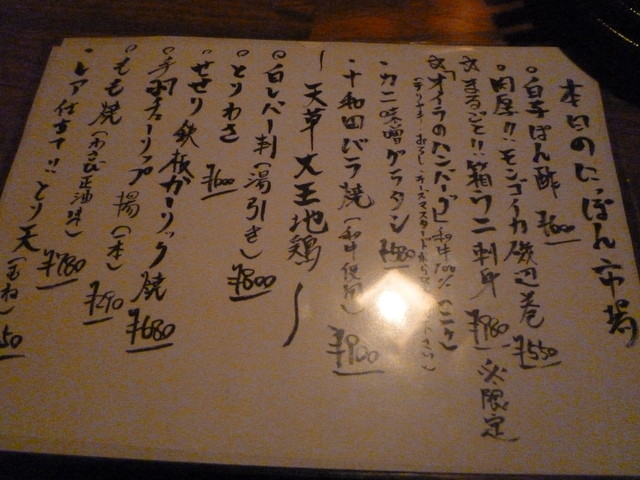 本日のにっぽん市場
。白子ぽん酢 ¥600
。肉厚!! モンゴイカ磯辺巻 ¥550
まるごと!! 箱ワニ刺身 ¥980 限定
「オイラのハンバーグ」(和牛100% (2ヶ)
・カニ味噌グラタン ¥580
・十和田バラ焼 (和牛使用) ¥900
〜天草大王地鶏〜
◎白レバー刺 (湯引き) ¥800
。とりわさ ¥600
。せせり鉄板ガーリック焼 ¥680
。手羽チューリップ揚 (一本) ¥290
・もも焼 (わさび正油味) ¥780
・レア仕立て!! とり天 (むね) 50